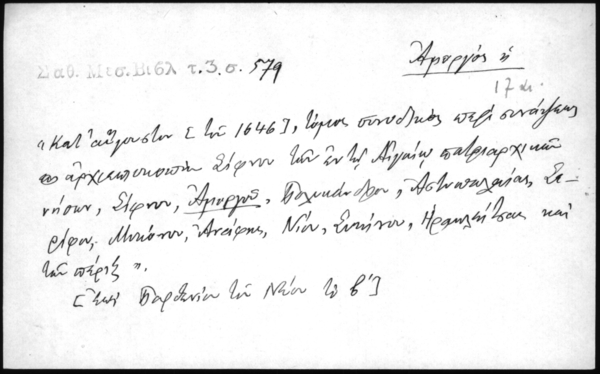 Σαθ. Μεσ. Βιβλ τ. 3. σ. 579
Ἀμοργός ἡ
17 αι.
"Κατ' αὔγουστον [τοῦ 1646], τόμος συνοδικός περί συνάψεως
ἀρχιεπισκοπῆς Σίφνου τῶν ἐν τῷ Αἰγαίῳ πατριαρχικῶν
νήσων, Σίφνου, Ἀμοργοῦ, Πολυκάνδρου, Ἀστυπαλαίας, Σε-
ρίφου, Μυκόνου, Ἀνάφης, Νίου, Σικίνου, Ἡρακλείτσας καί
τῶν πέριξ".
[Ἐπί Παρθενίου τοῦ Νέου τοῦ β']